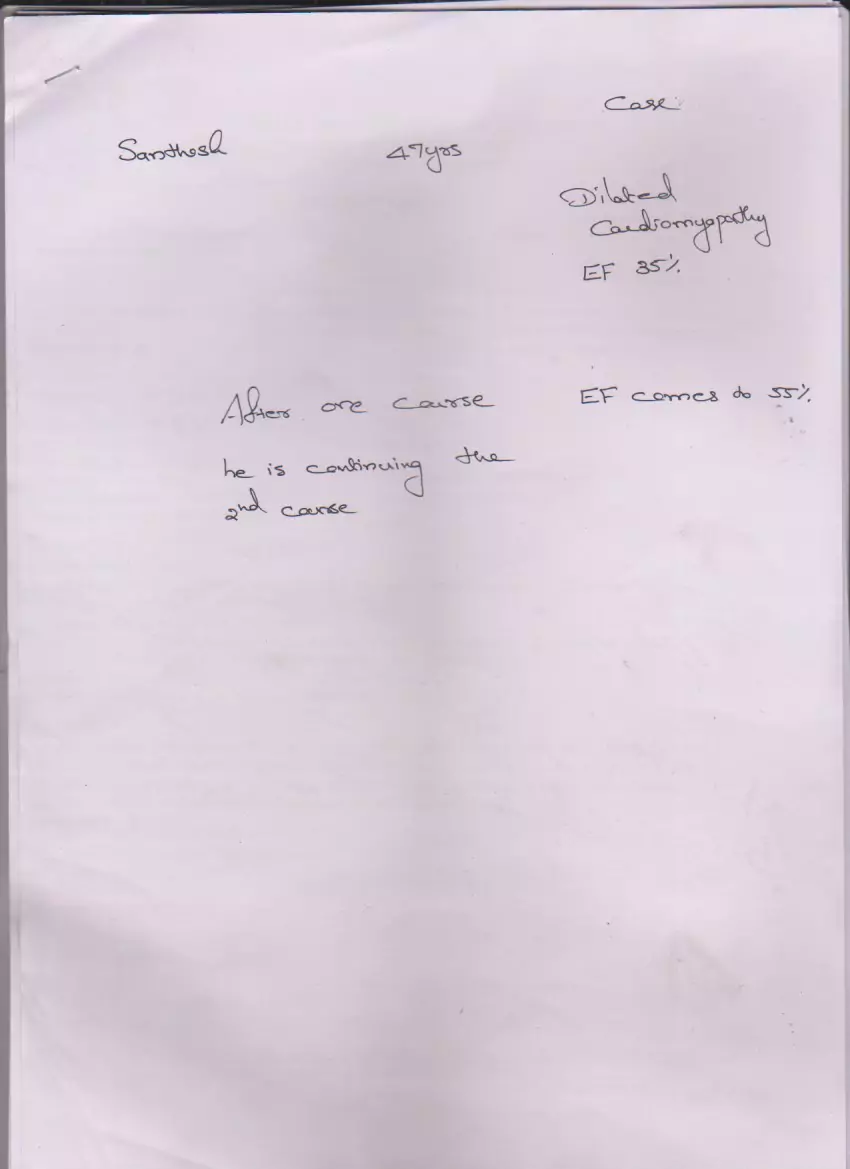 Case
Santhesh 47yrs
Dilated
Cardiomyopathy
EF 35%
After one course EF comes to 55%
he is continuing the
2nd course